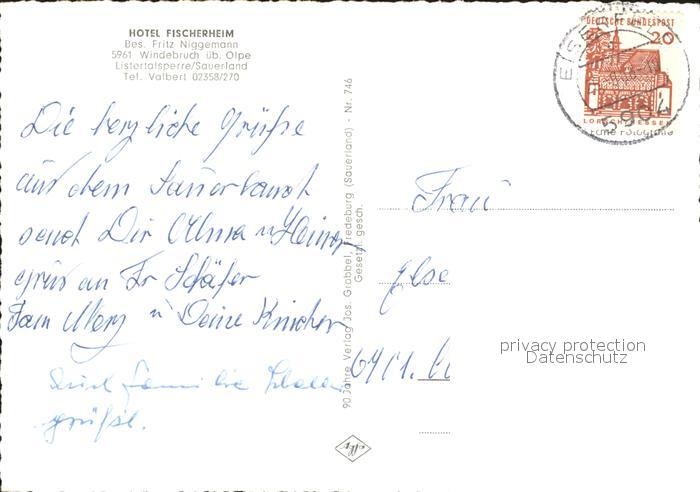 HOTEL FISCHERHEIM
Bes. Fritz Niggemann
5961 Windebruch üb. Olpe
Listertalsperre/Sauerland
Tel. Valbert 02358/270
Die herzliche Grüße
aus dem Sauerland
send Dir Alma u Heiner
grüß an Fr Schäfer
Fam Merz u Deine Kinder
Auch Familie
grüßt.
90 Jahre Verlag Jos. Grobbel, Fredeburg (Sauerland) - Nr. 746
Gesetzl. gesch.
DEUTSCHE BUNDESPOST
20
LORSCH HESSEN
5904
Echte Fotografie
Frau
Else
privacy protection
Datenschutz